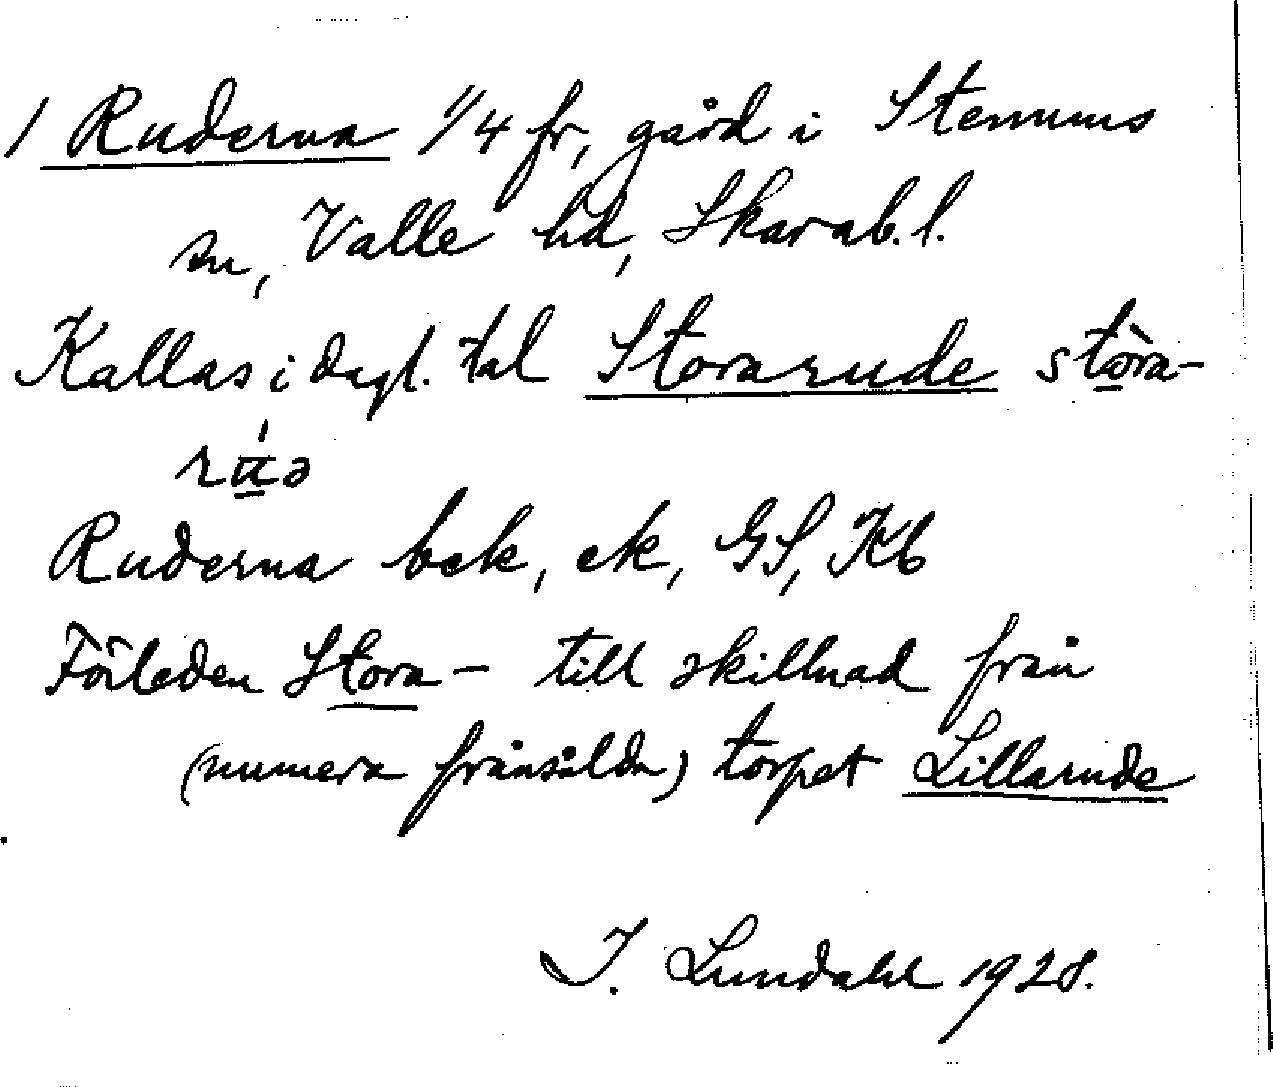 / Ruderna 1/4 fr, gård i Stenums
sn, Valle hd, Skarab. l.
Kallas i dagl. tal Storarude stòra-
Ruderna bek, ek, GS, Kb
Förleden Stora- till skillnad från
(numera frånsålda) torpet Lillarude
I. Lundahl 1928.